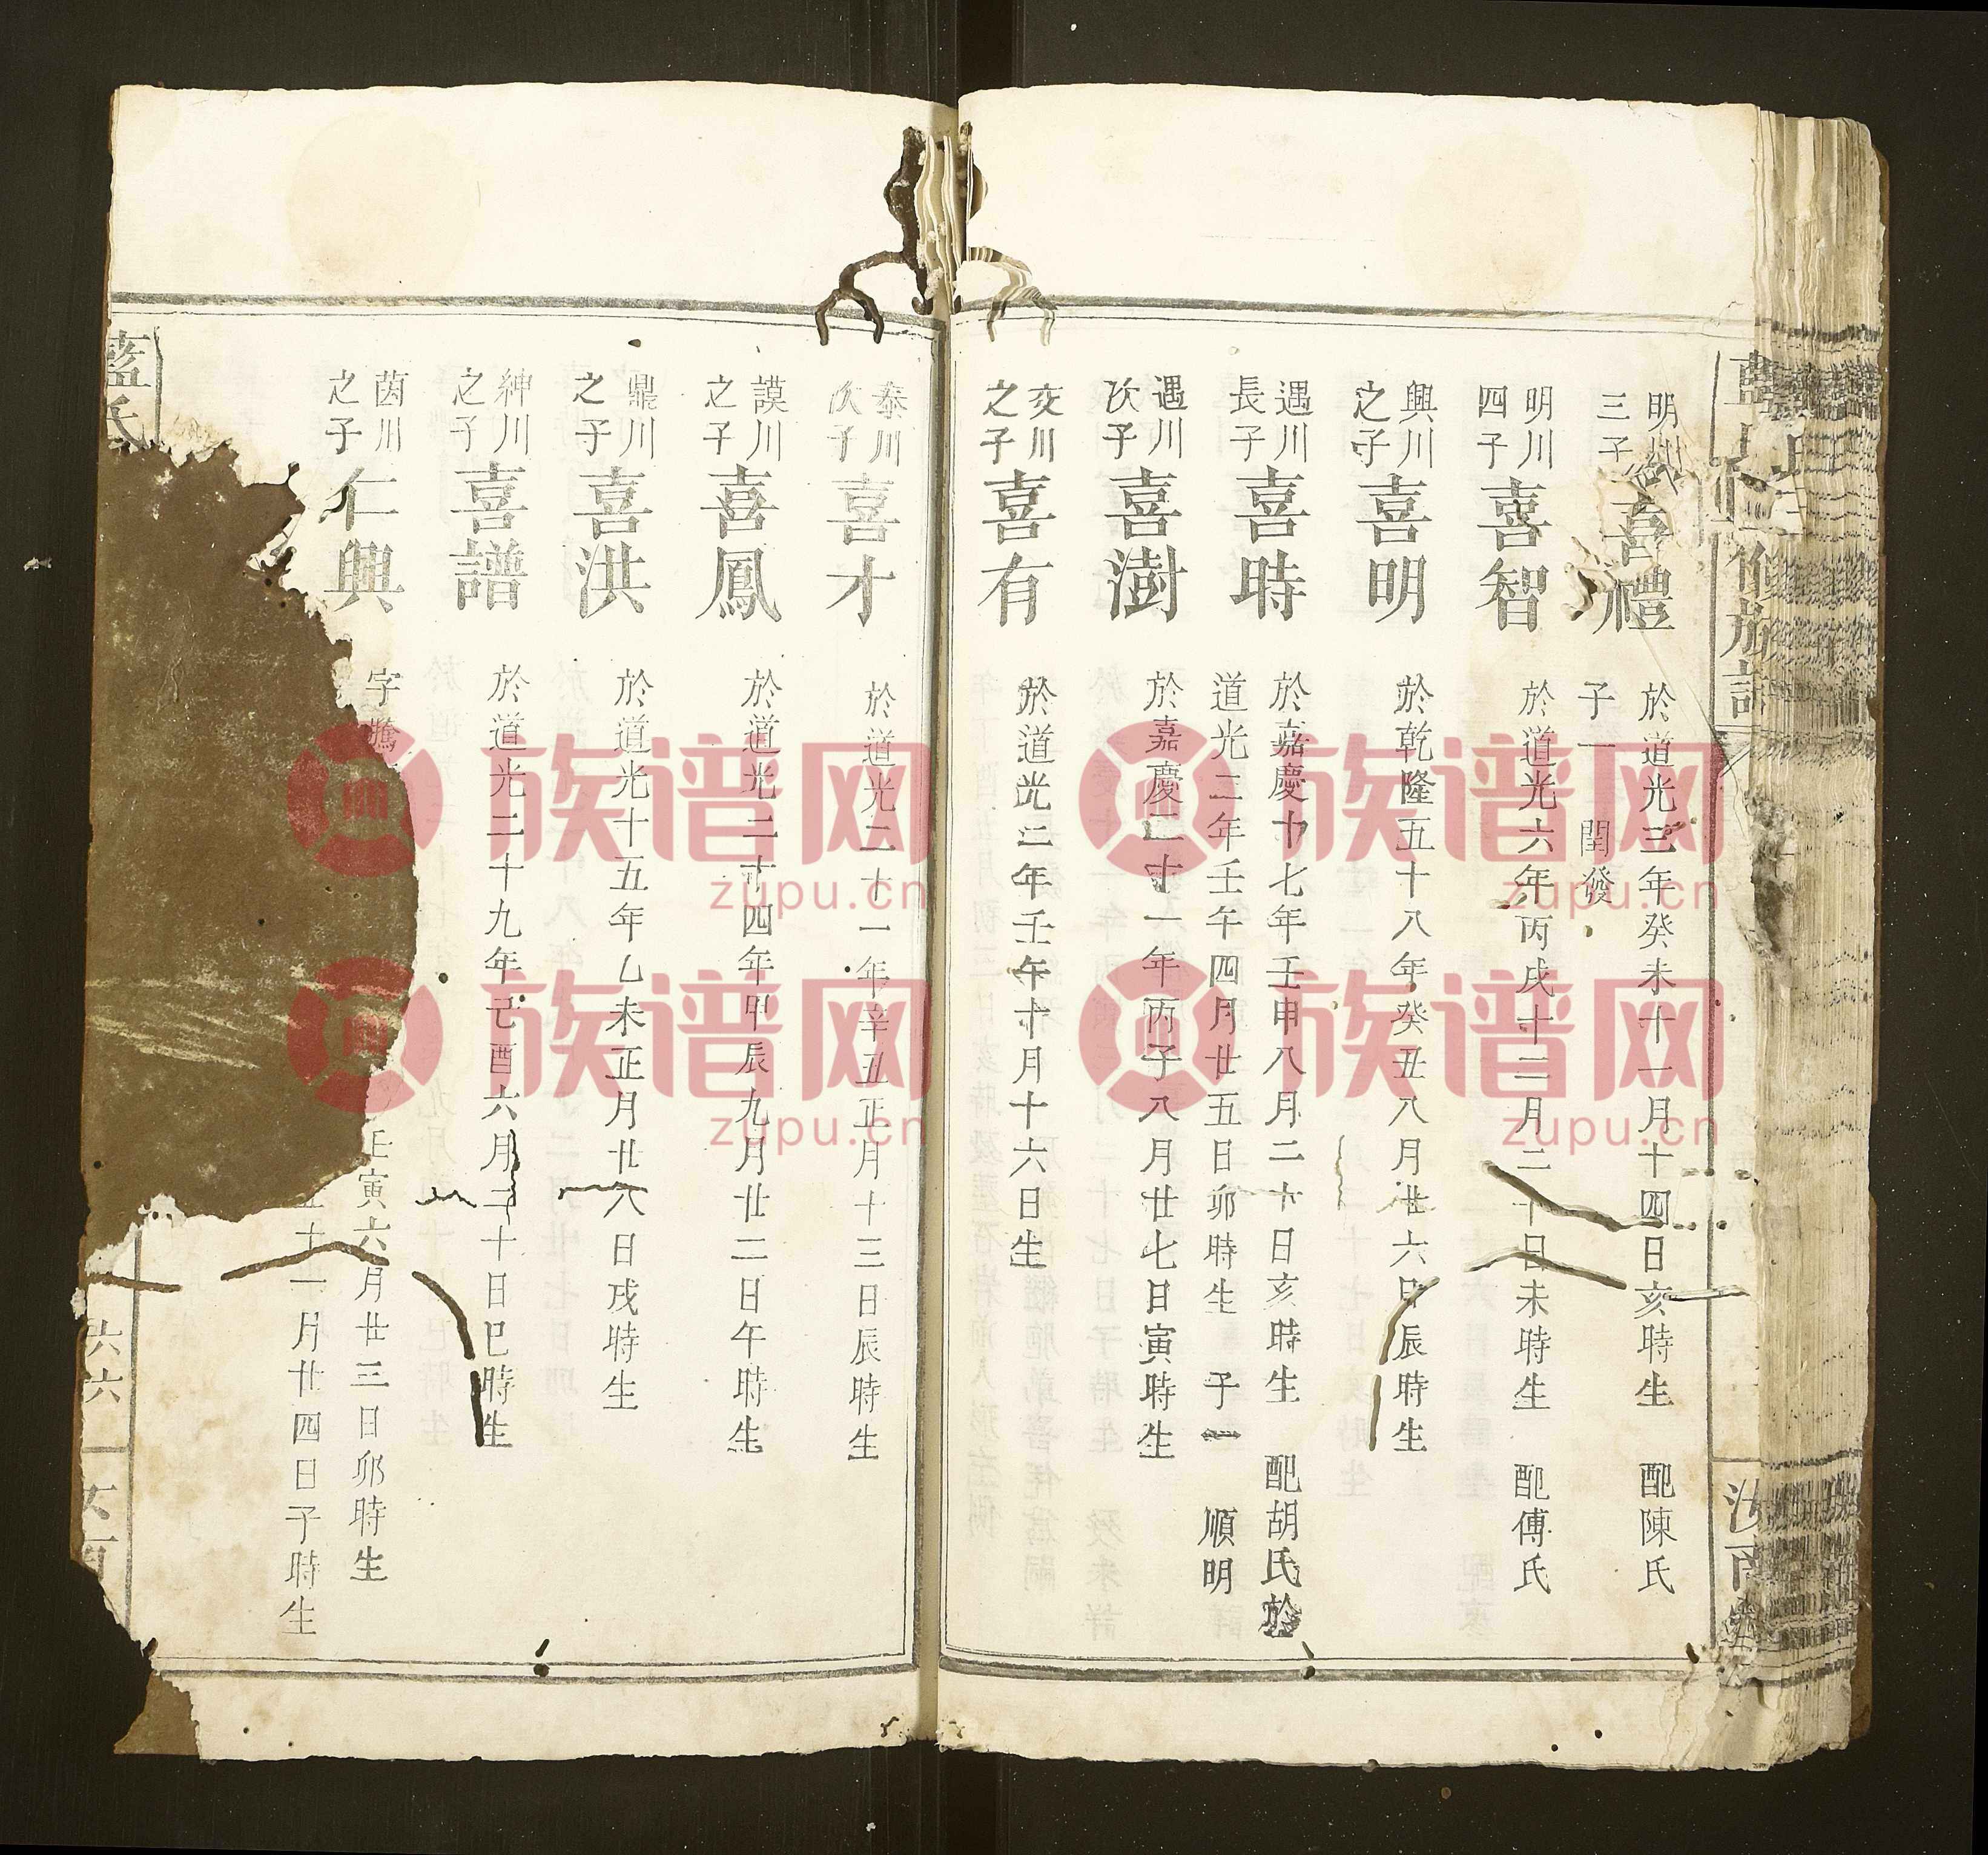 明川
三子
喜禮
於道光三年癸未十一月十四日亥時生 配陳氏
子一 閏發
明川
四子
喜智
於道光六年丙戌十二月二十日未時生 配傅氏
興川
之子
喜明
於乾隆五十八年癸丑八月廿六日辰時生
遇川
長子
喜時
於嘉慶十七年壬申八月二十日亥時生 配胡氏於
道光二年壬午四月廿五日卯時生 子一 順明
遇川
次子
喜澍
於嘉慶二十一年丙子八月廿七日寅時生
交川
之子
喜有
於道光二年壬午十月十六日生
泰川
次子
喜才
於道光二十一年辛丑正月十三日辰時生
謨川
之子
喜鳳
於道光二十四年甲辰九月廿二日午時生
鼎川
之子
喜洪
於道光十五年乙未正月廿八日戌時生
紳川
之子
喜譜
於道光二十九年己酉六月二十日巳時生
茵川
之子
仁興
字騰
壬寅六月廿三日卯時生
十一月廿四日子時生
藍氏
六六
族谱网
zupu.cn
族谱网
zupu.cn
族谱网
zupu.cn
族谱网
zupu.cn